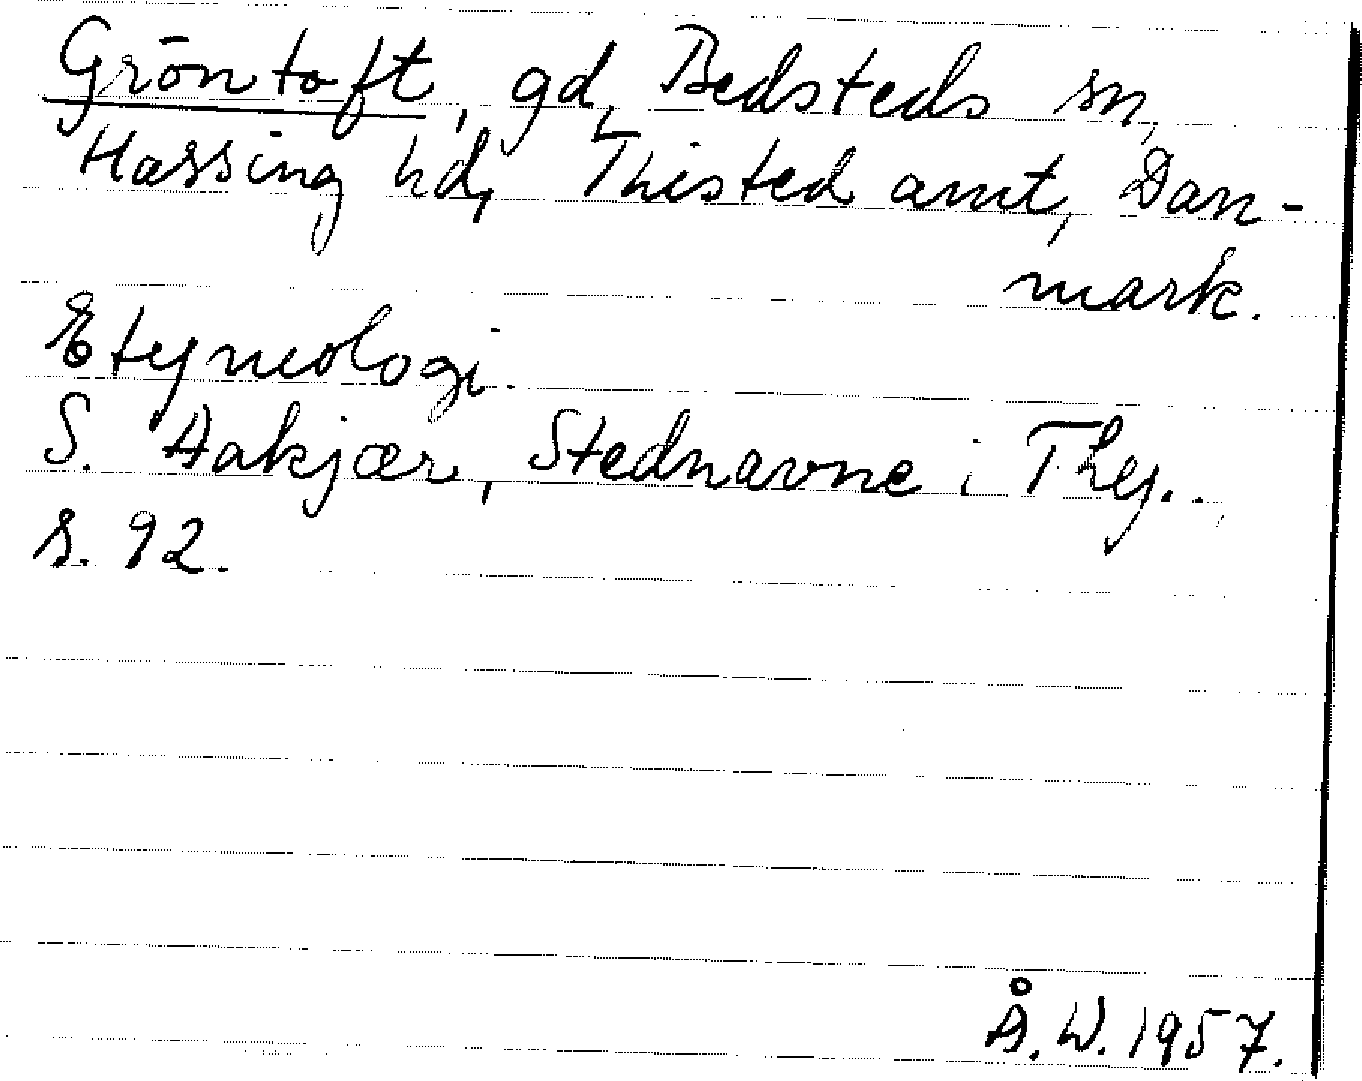 Gröntoft, gd, Bedsteds sn,
Hassing hd, Thisted amt, Dan-
mark.
Etymologi.
S. Aakjær, Stednavne i Thy.,
s. 92.
Å. W. 1957.